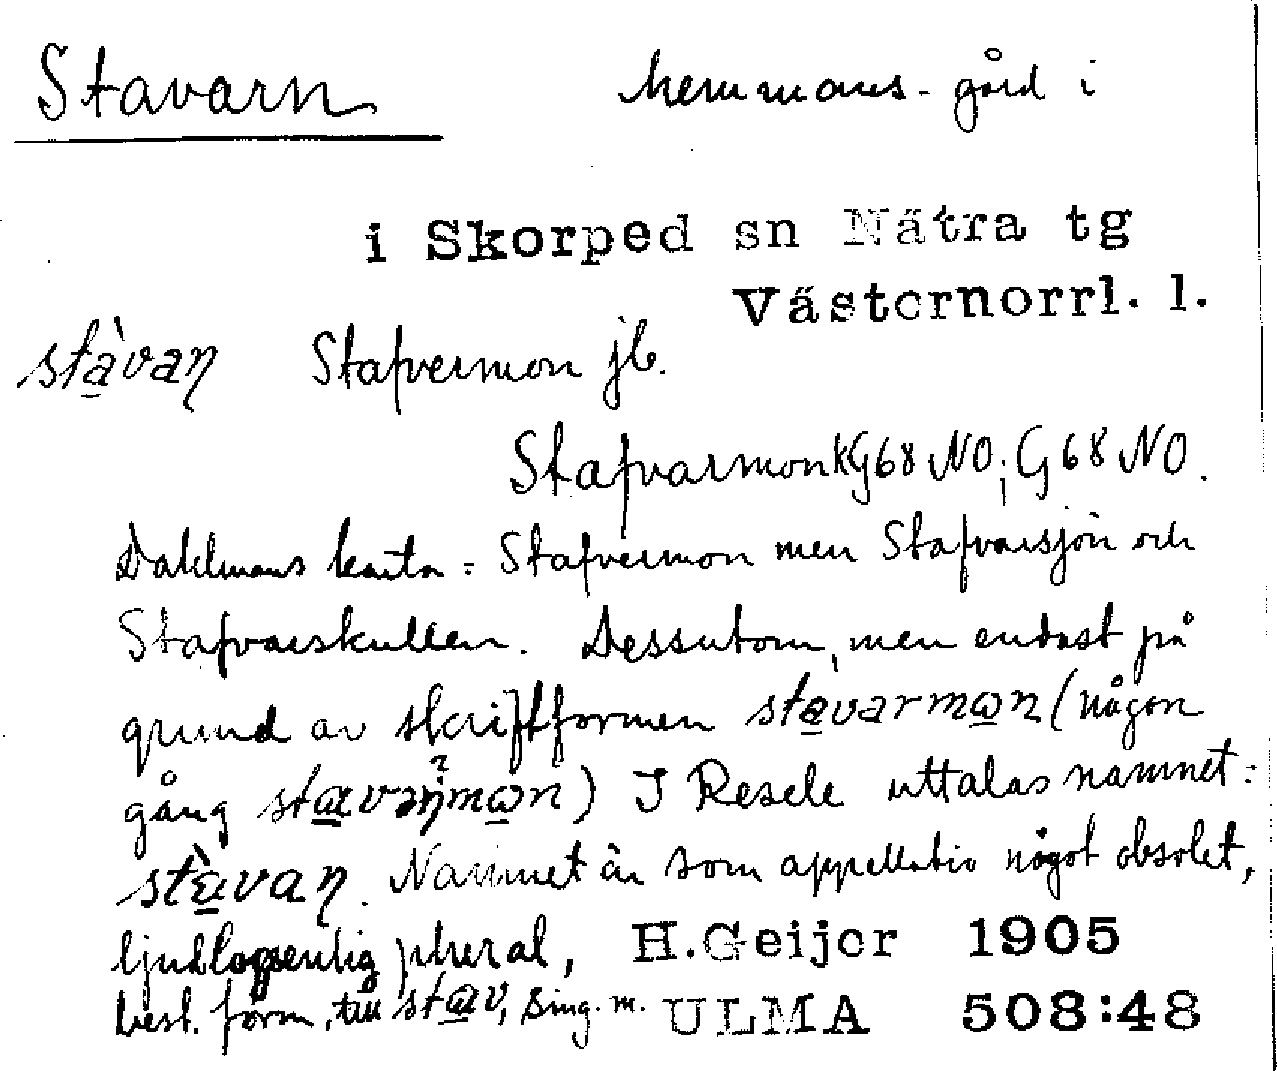 Stavarn hemmans-gård i
i Skorped sn Nätra tg
Västernorrl. l.
stàvaɳ Stafvermon jb.
Stafvarmon kG68 NO; G68 NO.
Dahlmans karta = Stafvermon men Stafvarsjön och
Stafvarskullen. Dessutom, men endast på
grund av skriftformen stavarmωn (någon
gång stavaɳmωn) I Resele uttalas namnet:
stàvaɳ. Namnet är som appellativ något obsolet,
ljudlagsenlig plural, H.Geijer 1905
best. form, till stav, sing. m. ULMA 508:48